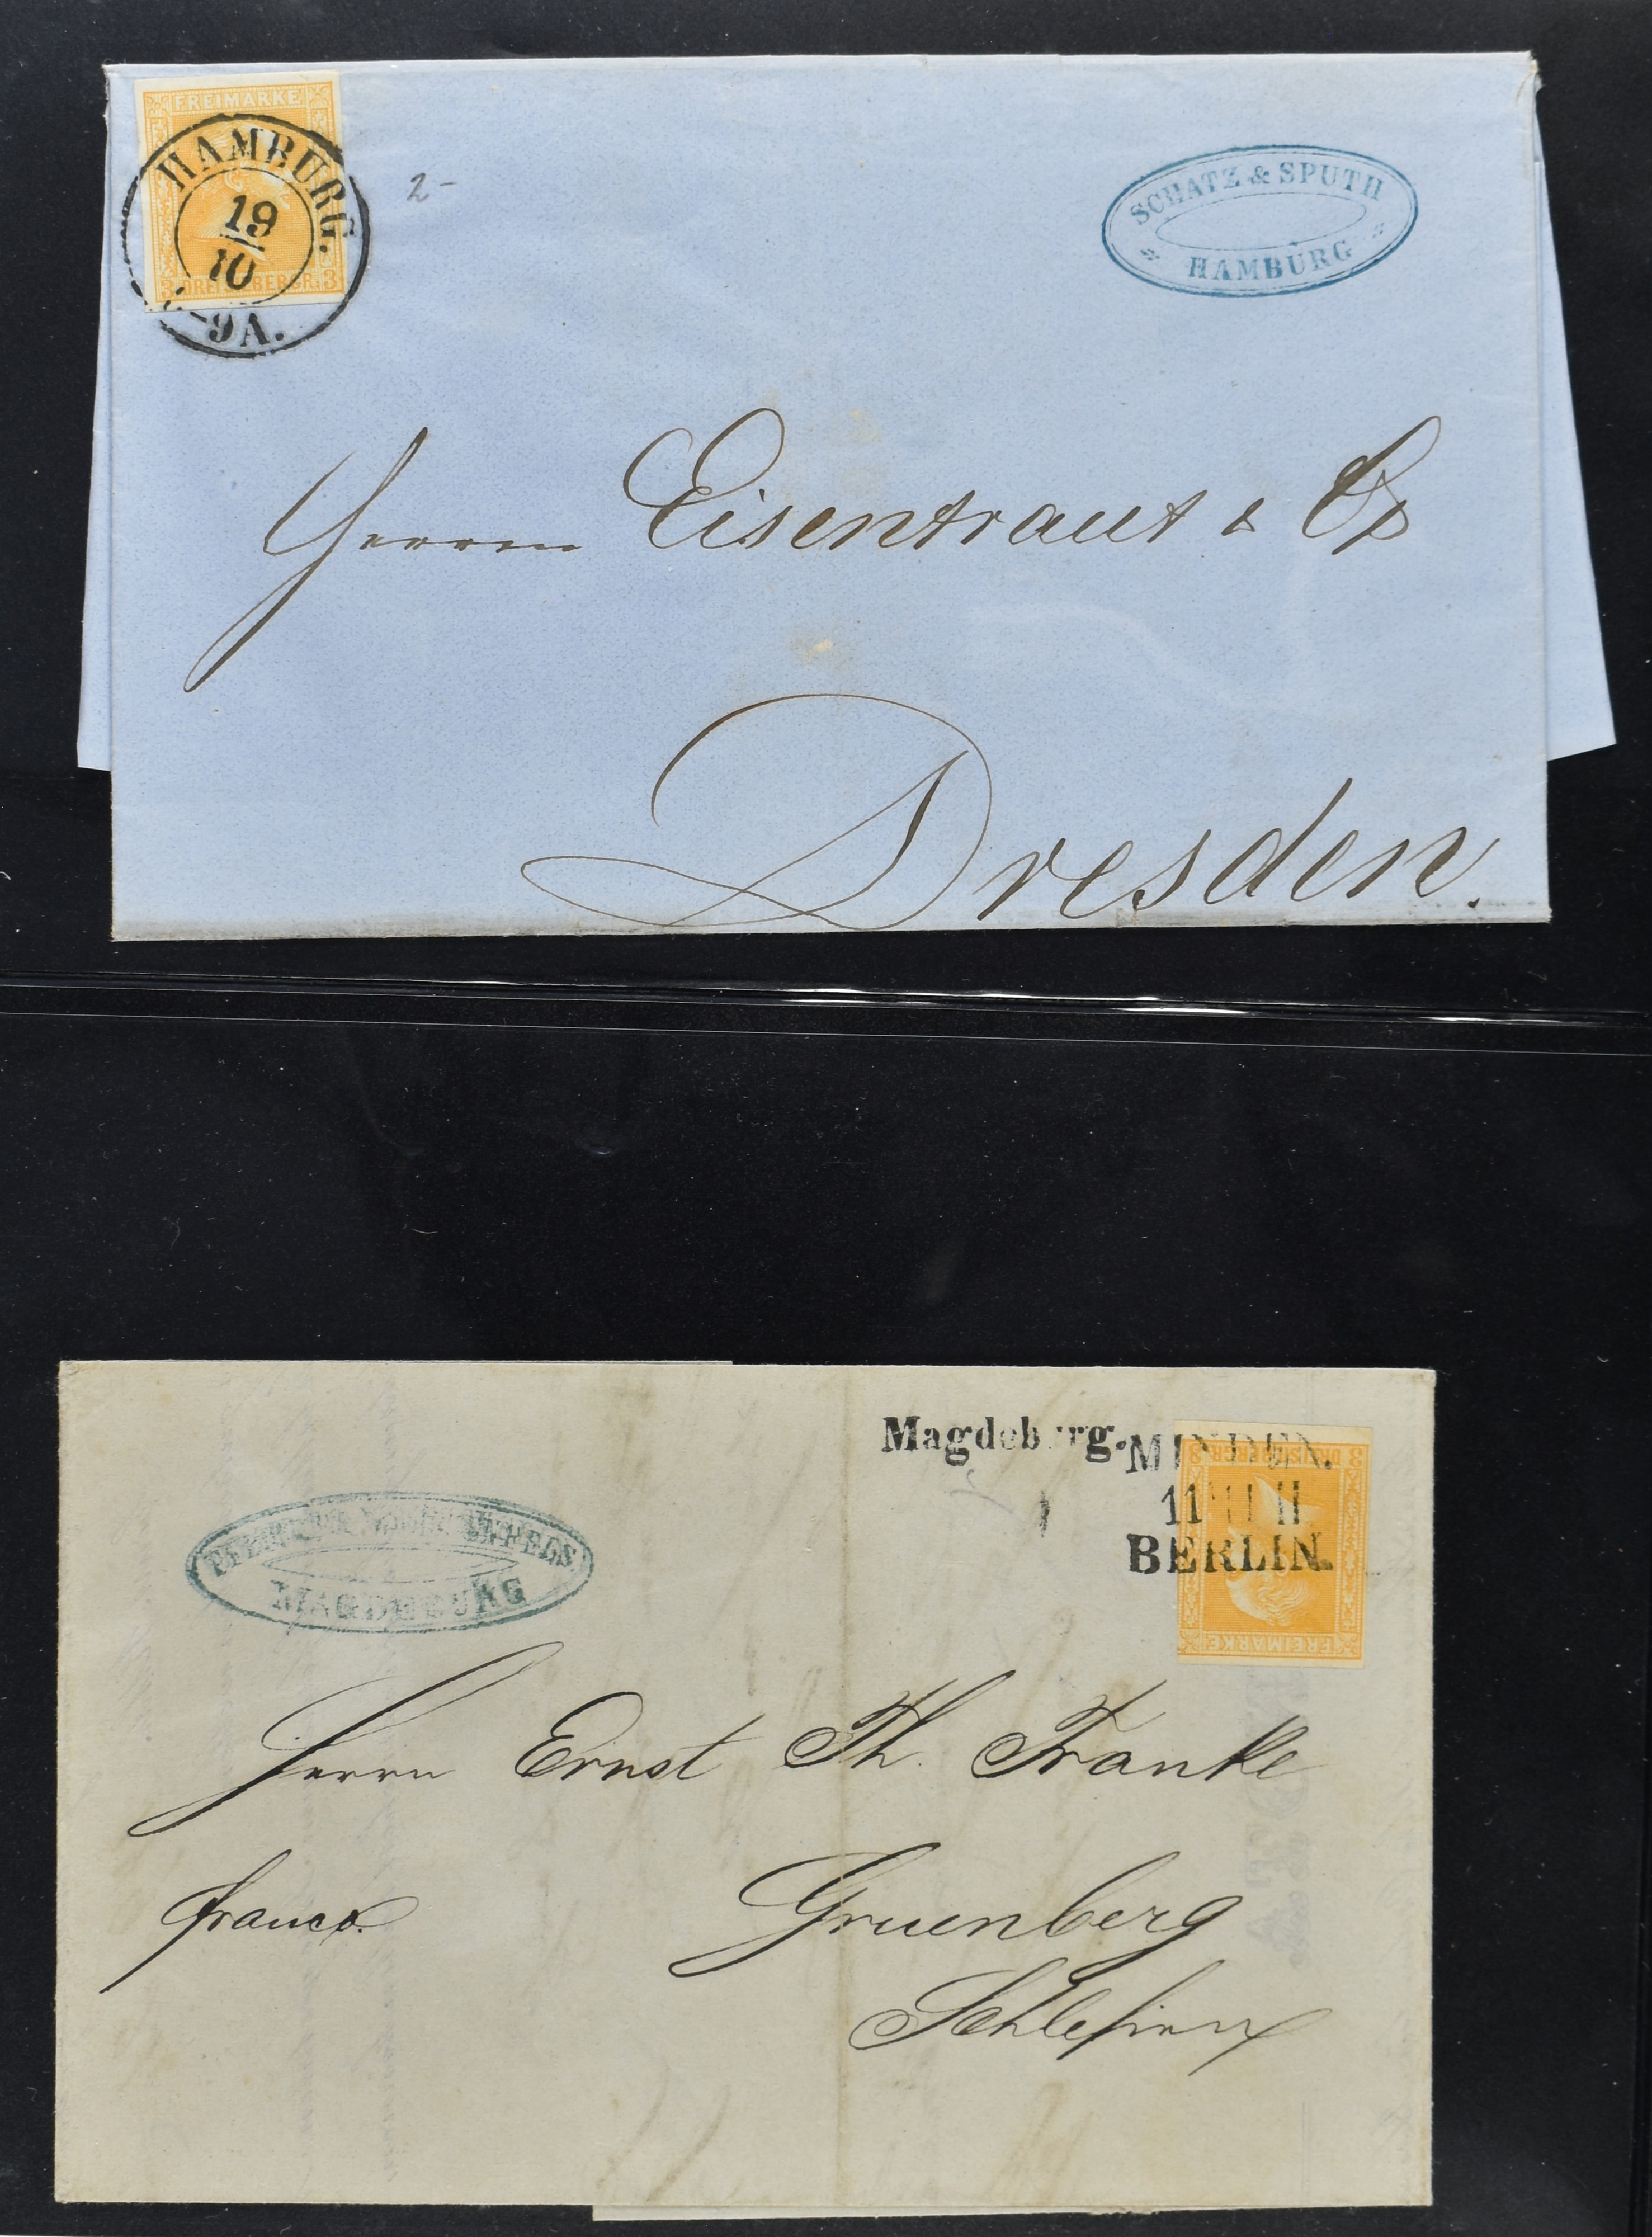 FREIMARKE
HAMBURG.
19
10
9A.
3 DREI SILBERGR. 3
2-
SCHATZ & SPUTH
HAMBURG
Herrn Eisentraut & Co
Dresden.
Magdeburg.
MINDEN.
11 II
BERLIN.
3 DREI SILBERGR. 3
FREIMARKE
MAGDEBURG
Herrn Ernst Th. Franke
franco.
Gruenberg
Schlesien